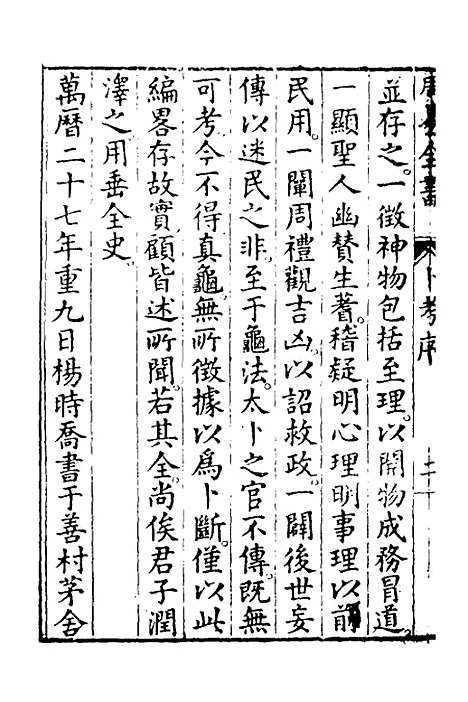 周易全書 卜考序 二
並存之。一徵神物包括至理。以開物成務冒道。
一顯聖人幽賛生蓍。稽疑明心理明事理以前
民用。一闡周禮觀吉凶。以詔救政。一闢後世妄
傳以迷民之非。至于龜法。太卜之官不傳。旣無
可考今不得真龜。無所徵據以爲卜斷。僅以此
編畧存故實。顧皆述所聞。若其全。尚俟君子潤
澤之用垂全史。
萬曆二十七年重九日楊時喬書于善村茅舍